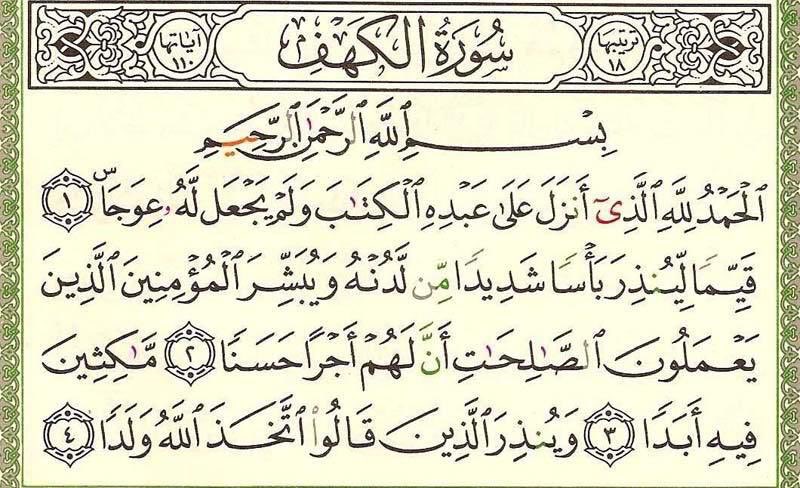 ترتيبها ١٨
سُورَةُ الْكَهْفِ
آياتها ١١٠
بِسْمِ ٱللَّهِ ٱلرَّحْمَٰنِ ٱلرَّحِيمِ
ٱلْحَمْدُ لِلَّهِ ٱلَّذِىٓ أَنزَلَ عَلَىٰ عَبْدِهِ ٱلْكِتَٰبَ وَلَمْ يَجْعَل لَّهُۥ عِوَجَاۜ ١
قَيِّمًا لِّيُنذِرَ بَأْسًا شَدِيدًا مِّن لَّدُنْهُ وَيُبَشِّرَ ٱلْمُؤْمِنِينَ ٱلَّذِينَ
يَعْمَلُونَ ٱلصَّٰلِحَٰتِ أَنَّ لَهُمْ أَجْرًا حَسَنًا ٢ مَّٰكِثِينَ
فِيهِ أَبَدًا ٣ وَيُنذِرَ ٱلَّذِينَ قَالُوا۟ ٱتَّخَذَ ٱللَّهُ وَلَدًا ٤